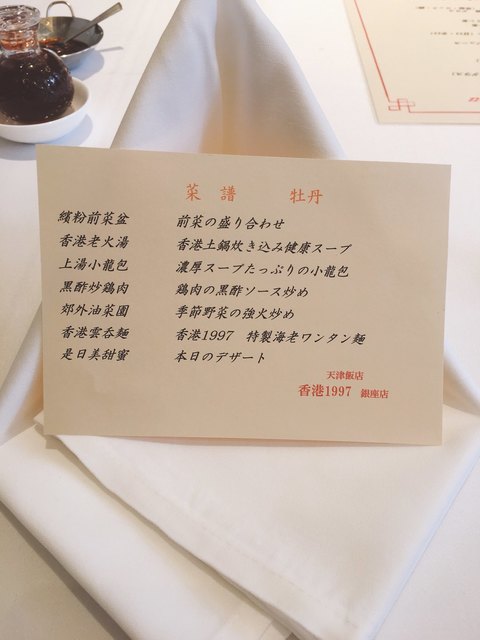 菜譜 牡丹
繽粉前菜盆 前菜の盛り合わせ
香港老火湯 香港土鍋炊き込み健康スープ
上湯小龍包 濃厚スープたっぷりの小龍包
黒酢炒鶏肉 鶏肉の黒酢ソース炒め
郊外油菜園 季節野菜の強火炒め
香港雲呑麺 香港1997 特製海老ワンタン麺
是日美甜蜜 本日のデザート
天津飯店
香港1997 銀座店